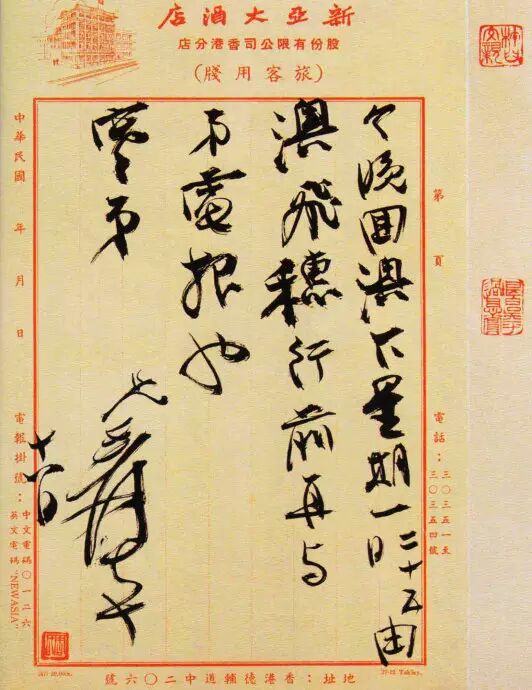 新亞大酒店
股份有限公司香港分店
(旅客用牋)
第 頁
電話：三〇三五一至
三〇三五四號
今晚囬澳下星期一日二十五由
澳飛穗行前再与
弟電報也
弟
兄爰
中華民國 年 月 日
電報掛號：中文電碼〇一二六
英文電碼"NEWASIA"
地址：香港德輔道中二〇六號